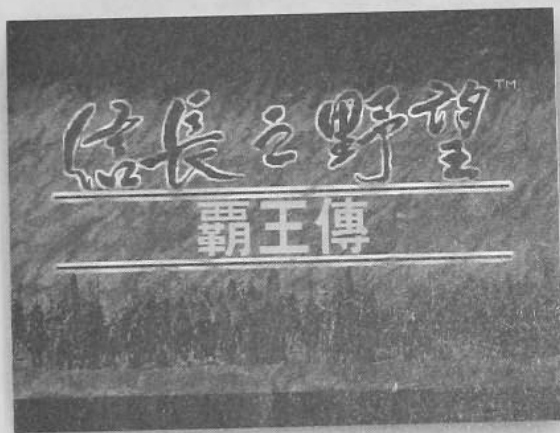 信長之野望™
覇王傳